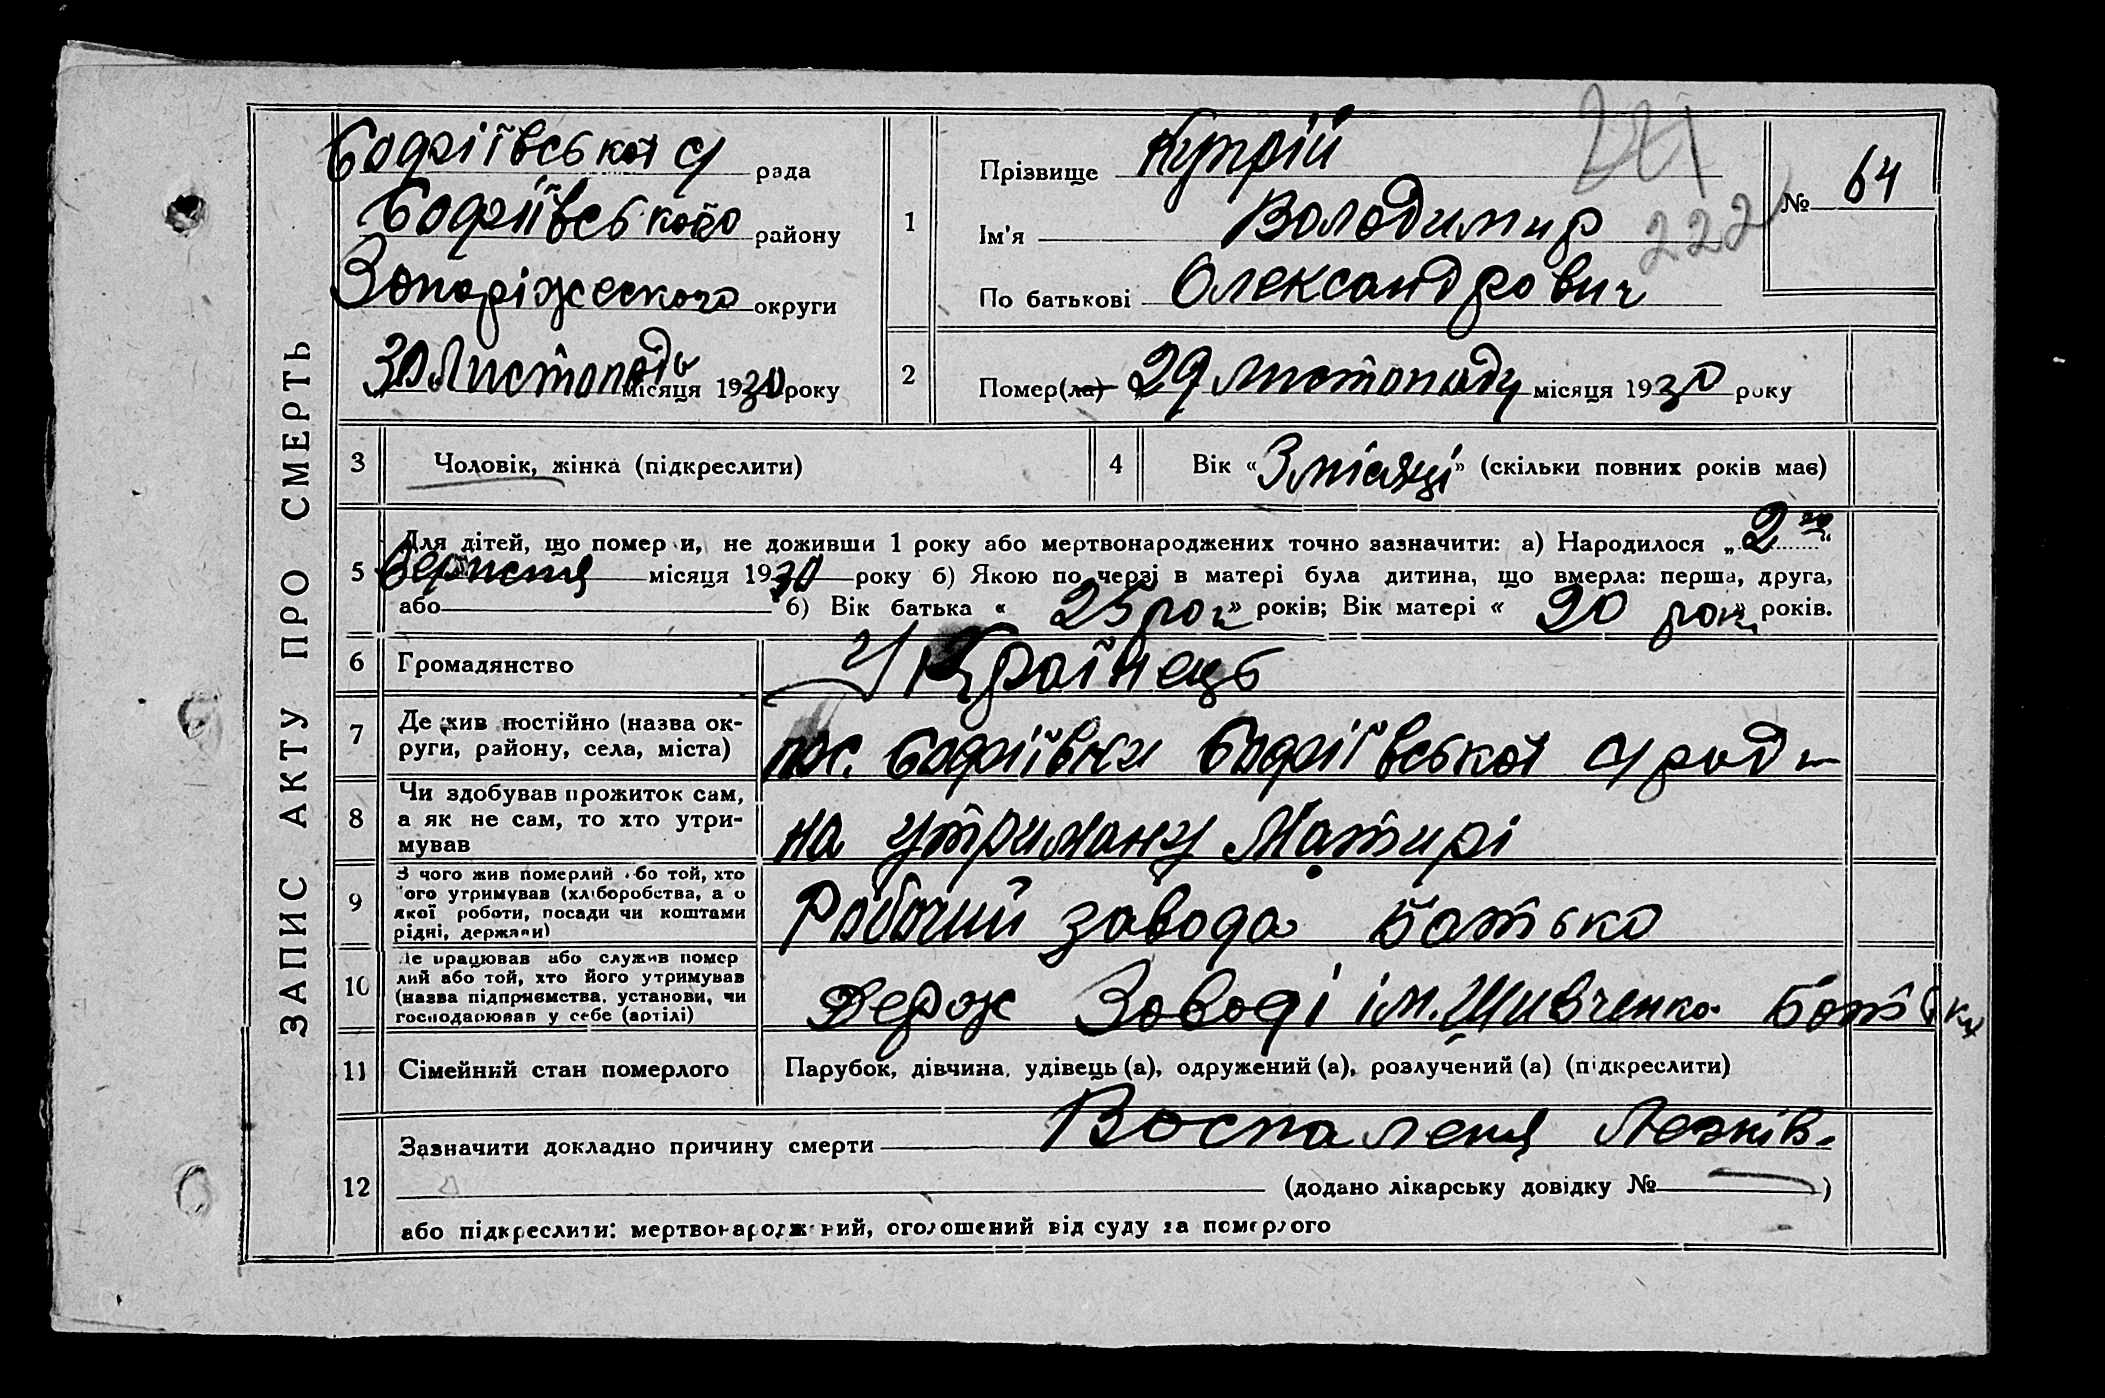 ЗАПИС АКТУ ПРО СМЕРТЬ
Софіївської с/ рада
Софіївського району
Запоріжського округи
30 Листопада місяця 1930 року
1
Прізвище Купрій
Ім'я Володимир
По батькові Олександрович
221
222
№ 64
2
Помер(ла) 29 листопаду місяця 1930 року
3 Чоловік, жінка (підкреслити)
4 Вік « 3 місяці » (скільки повних років має)
5
Для дітей, що померли, не доживши 1 року або мертвонароджених точно зазначити: а) Народилося „ 2го “
Вересня місяця 1930 року б) Якою по черзі в матері була дитина, що вмерла: перша, друга,
або б) Вік батька « 25 рок » років; Вік матері « 20 рок » років.
6 Громадянство Українець
7 Де жив постійно (назва ок-
руги, району, села, міста)
пос. Софіївки Софіївської с/ради
8 Чи здобував прожиток сам,
а як не сам, то хто утри-
мував
на утриману Матирі
9 З чого жив померлий або той, хто
його утримував (хліборобства, а о
якої роботи, посади чи коштами
рідні, держави)
Робочий завода батько
10 Де працював або служив помер
лий або той, хто його утримував
(назва підприємства, установи, чи
господарював у себе (артілі)
Держ Заводі ім. Шивченка
11 Сімейний стан померлого Парубок, дівчина, удівець (а), одружений (а), розлучений (а) (підкреслити)
12
Зазначити докладно причину смерти Воспаленя Легків.
(додано лікарську довідку № —)
або підкреслити: мертвонароджений, оголошений від суду за померлого